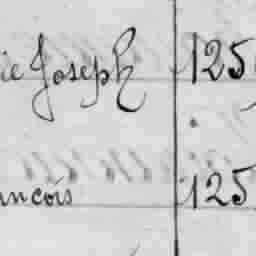 ie Joseph 125
ancois 125